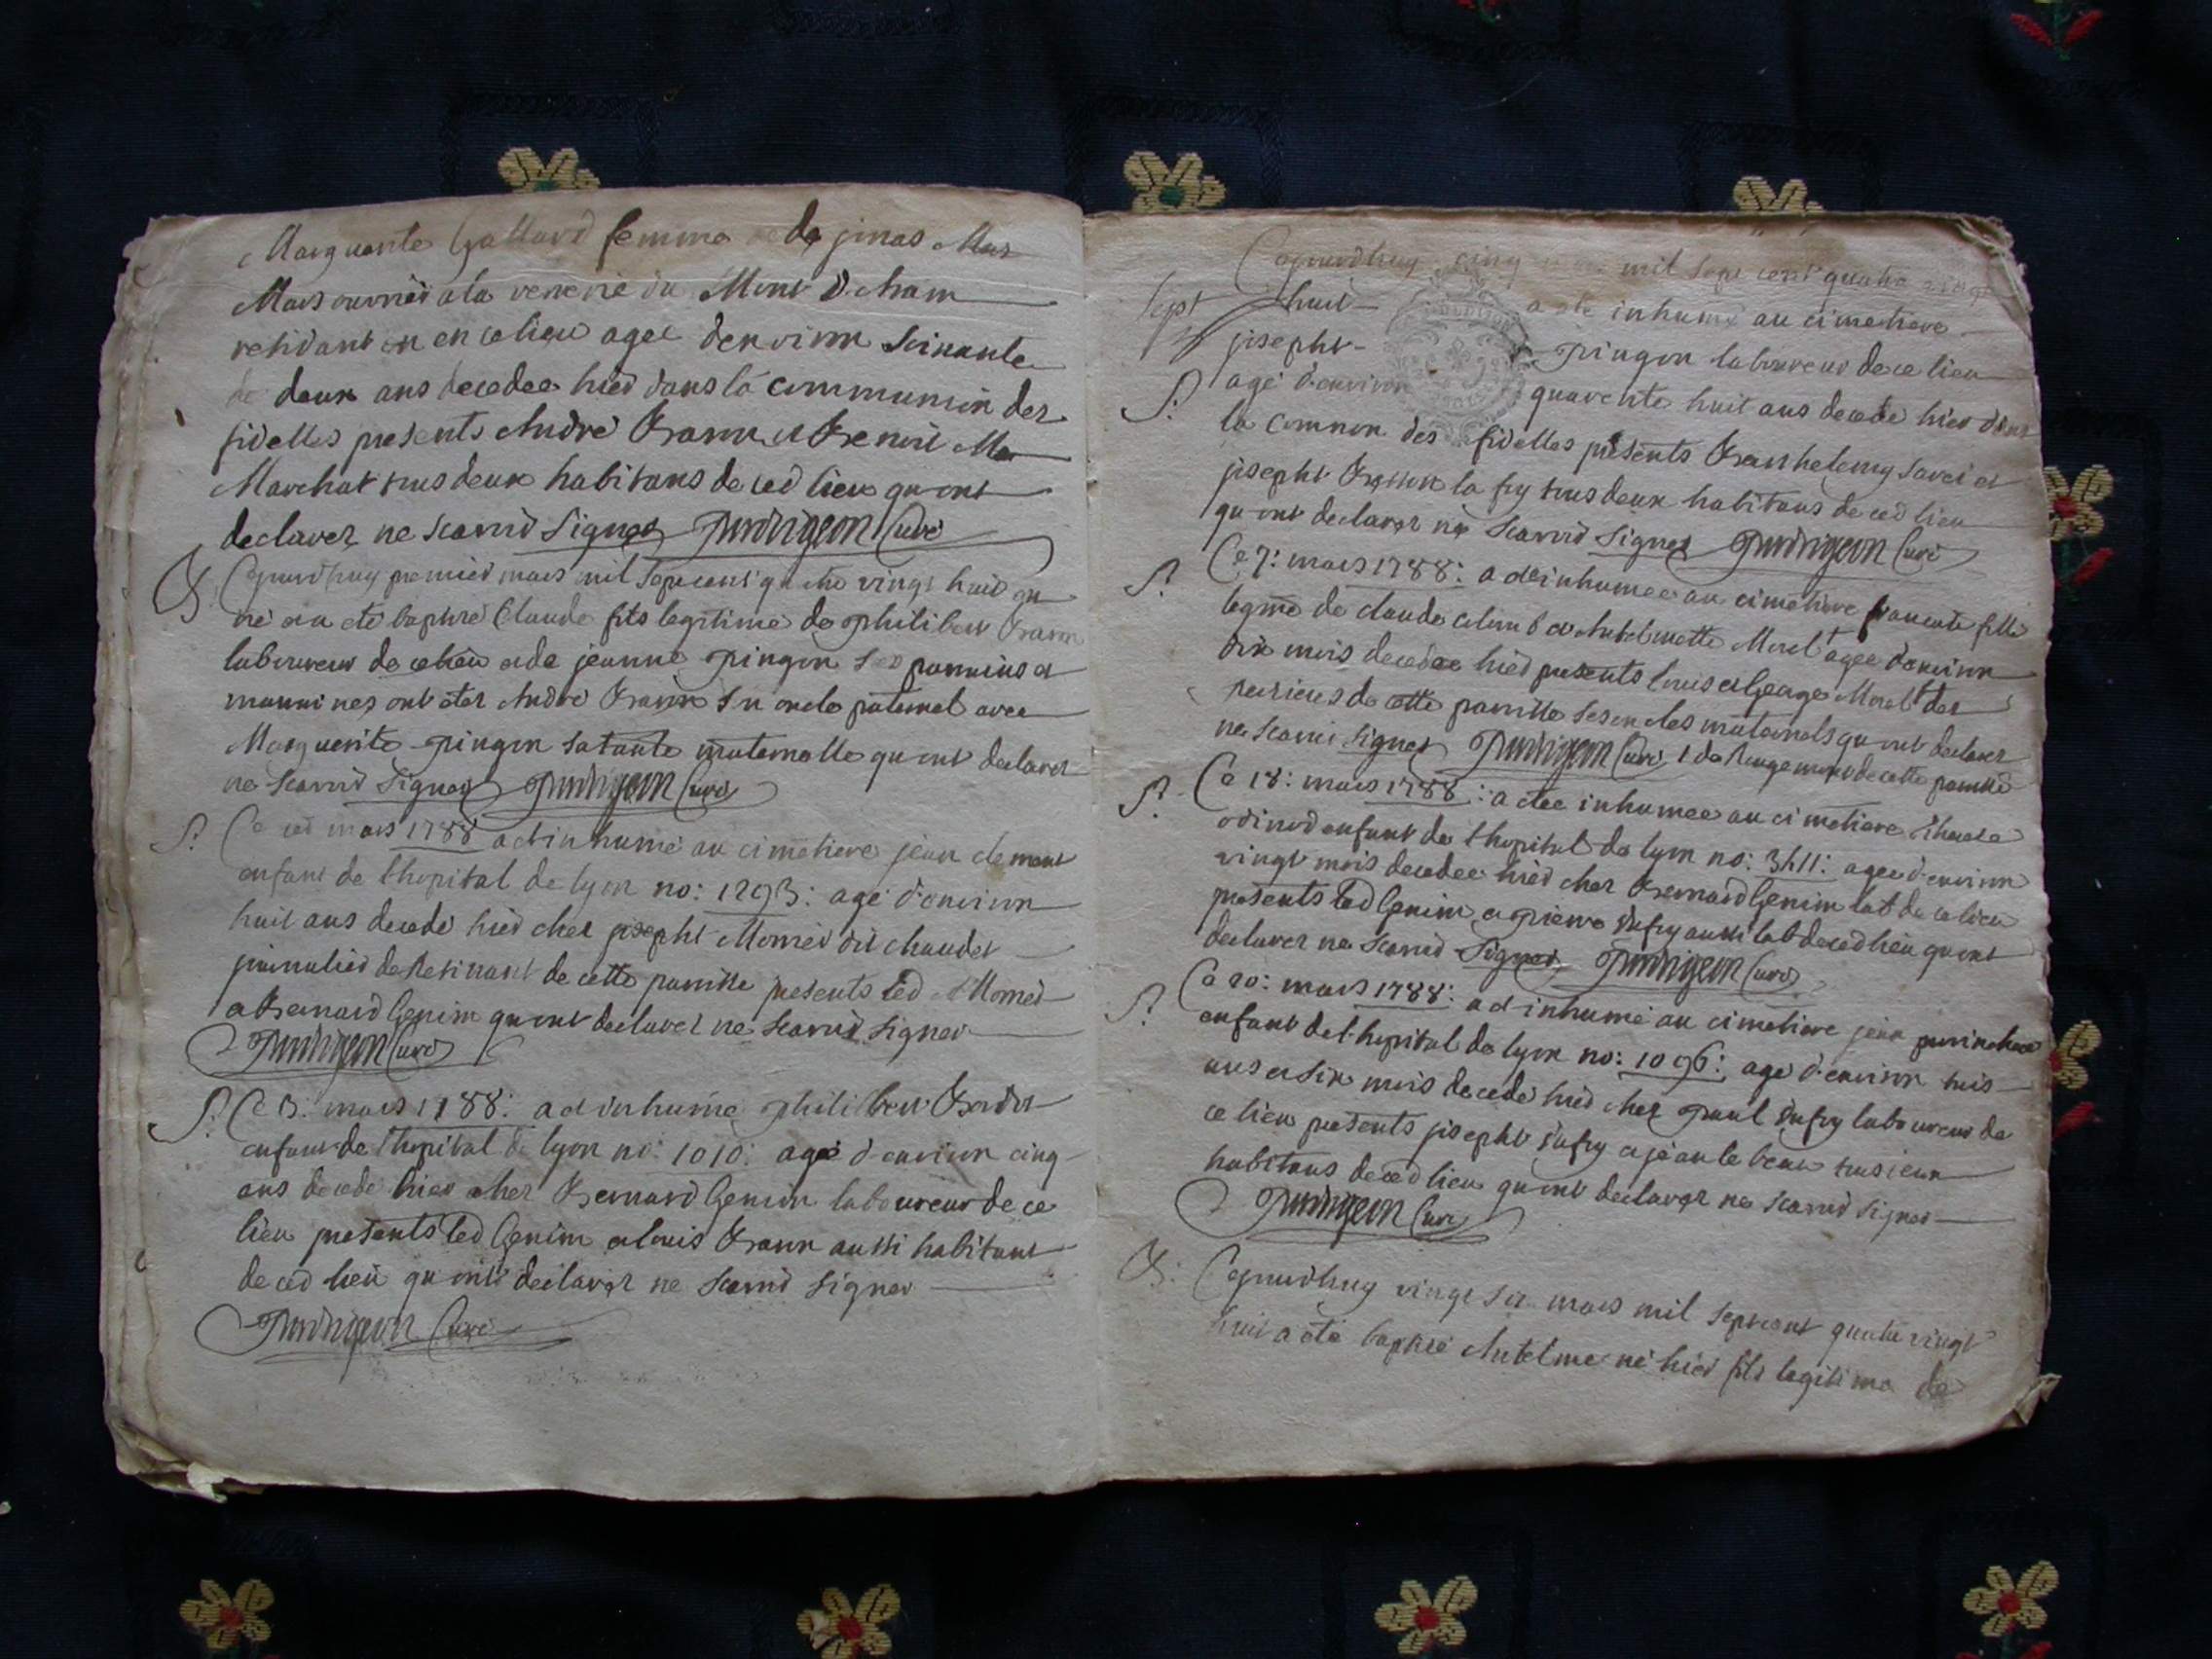 Marguerite Gallard femme de jinas Mar
Mars ouvrier a la verrerie du Mont D. chain
residant en ce lieu agee denviron soixante
deux ans decedee hier dans la communion des
fidelles presents André Brann et Benoit Mar
Marchat tous deux habitans de ced lieu qu ont
declarer ne scavoir signer Curé
B. Cejourdhuy premier mars mil sept cent quatre vingt huit
né a eté baptisé Claude fils legitime de philibert Brann
laboureur de ce lieu et de jeanne pingon ses parrains et
marraines ont eter André Brann son oncle paternel avec
Marguerite pingon sa tante maternelle qu ont declarer
ne scavoir signer Curé
S. Ce mars 1788 a et inhumé au cimetiere jean clement
enfant de lhopital de lyon no: 1293: agé d'environ
huit ans decedé hier chez joseph Momer dit chaudet
journalier de cette paroisse presents led Momer
et Bernard Genin qu ont declarer ne scavoir signer
Curé
S. Ce 3: mars 1788: a et inhumé philibert
enfant de lhopital de lyon no: 1010: agé d'environ cinq
ans decedé hier chez Bernard Genin laboureur de ce
lieu presents led Genin et louis Brann aussi habitant
de ced lieu qu ont declarer ne scavoir signer
Curé
Cejourdhuy cinq mil sept cent quatre vingt
sept huit a eté inhumé au cimetiere
joseph pingon laboureur de ce lieu
S. agé d'environ quarente huit ans decedé hier dans
la common des fidelles presents Barthelemy et
joseph tous deux habitans de ced lieu
qu ont declarer ne scavoir signer Curé
S. Ce 7: mars 1788: a et inhumee au cimetiere fille
legme de claude et Morel + agee d'environ
dix mois decedee hier presents louis et George Morel
de cette paroisse ses oncles maternels qu ont declarer
ne scavoir signer Curé de cette paroisse
S. Ce 18: mars 1788: a etee inhumee au cimetiere
enfant de lhopital de lyon no: 3411: agee d'environ
vingt mois decedee hier chez Bernard Genin lab de ce lieu
presents led Genin et pierre aussi lab de ced lieu qu ont
declarer ne scavoir signer Curé
S. Ce 20: mars 1788: a et inhumé au cimetiere jean
enfant de lhopital de lyon no: 1096: agé d'environ trois
ans et six mois decedé hier chez paul laboureur de
ce lieu presents joseph et jean
habitans de ced lieu qu ont declarer ne scavoir signer
Curé
B: Cejourdhuy vingt six mars mil sept cent quatre vingt
huit a eté baptisé Antelme né hier fils legitime de